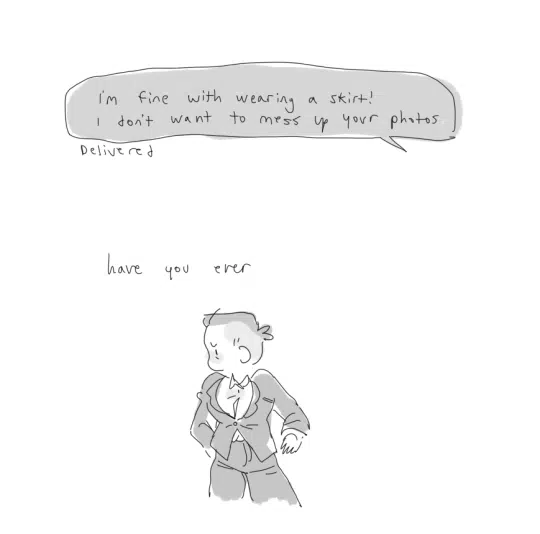 I'm fine with wearing a skirt!
I don't want to mess up your photos
Delivered
have you ever